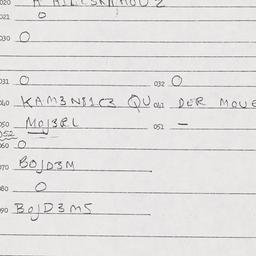 020
021 O
030 O
031 O 032 O
040 KAM3NS1C3 QU 041 DER MOVE
050 MOJ3RL 051 –
052
060 O
070 BOJD3M
080 O
090 BOJD3M5